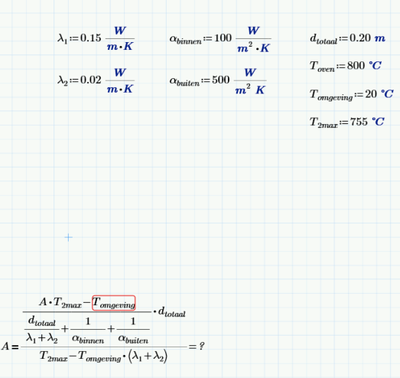 λ₁:=0.15 W/(m·K)   α_binnen:=100 W/(m²·K)   d_totaal:=0.20 m
T_oven:=800 °C
λ₂:=0.02 W/(m·K)   α_buiten:=500 W/(m² K)
T_omgeving:=20 °C
T_2max:=755 °C
A = (((A·T_2max−T_omgeving)/(d_totaal/(λ₁+λ₂)+1/α_binnen+1/α_buiten))·d_totaal)/(T_2max−T_omgeving·(λ₁+λ₂)) = ?